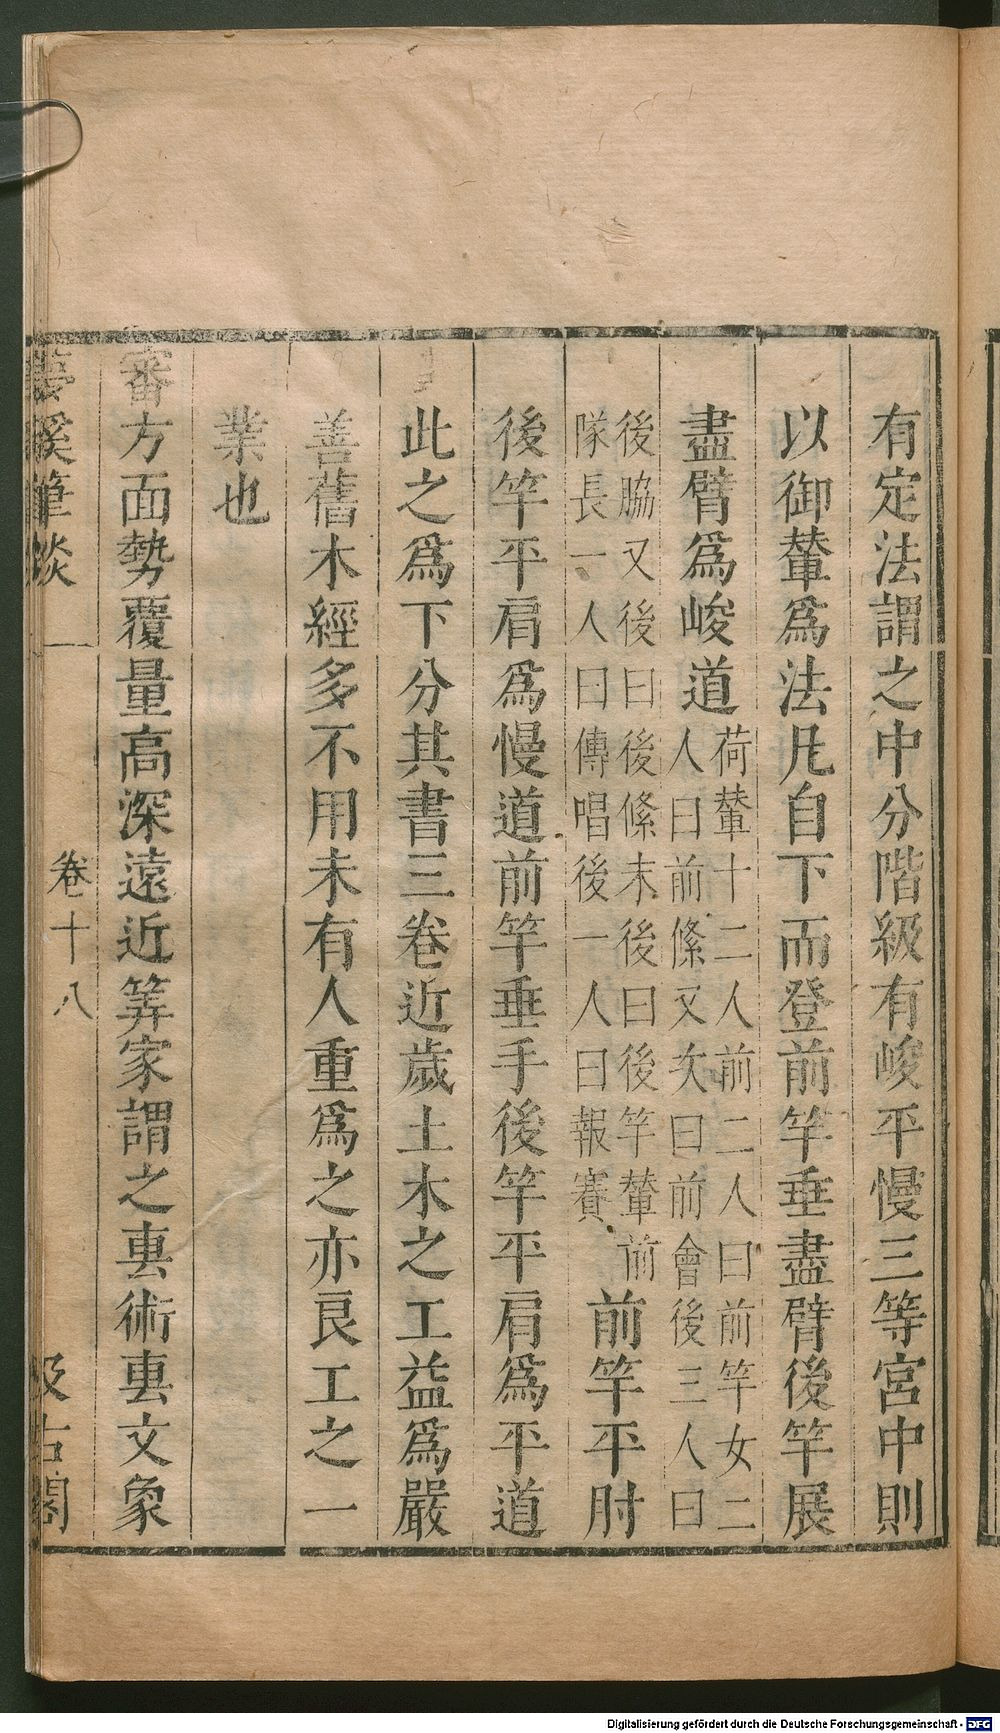 有定法謂之中分階級有峻平慢三等宮中則
以御輦爲法凡自下而登前竿垂盡臂後竿展
盡臂爲峻道荷輦十二人前二人曰前竿女二
人曰前絛又次曰前會後三人曰
後脇又後曰後絛末後曰後竿輦前
隊長一人曰傳唱後一人曰報賽前竿平肘
後竿平肩爲慢道前竿垂手後竿平肩爲平道
此之爲下分其書三卷近歲土木之工益爲嚴
善舊木經多不用未有人重爲之亦良工之一
業也
審方面勢覆量高深遠近筭家謂之叀術叀文象
夢溪筆談 卷十八 汲古閣
Digitalisierung gefördert durch die Deutsche Forschungsgemeinschaft - DFG